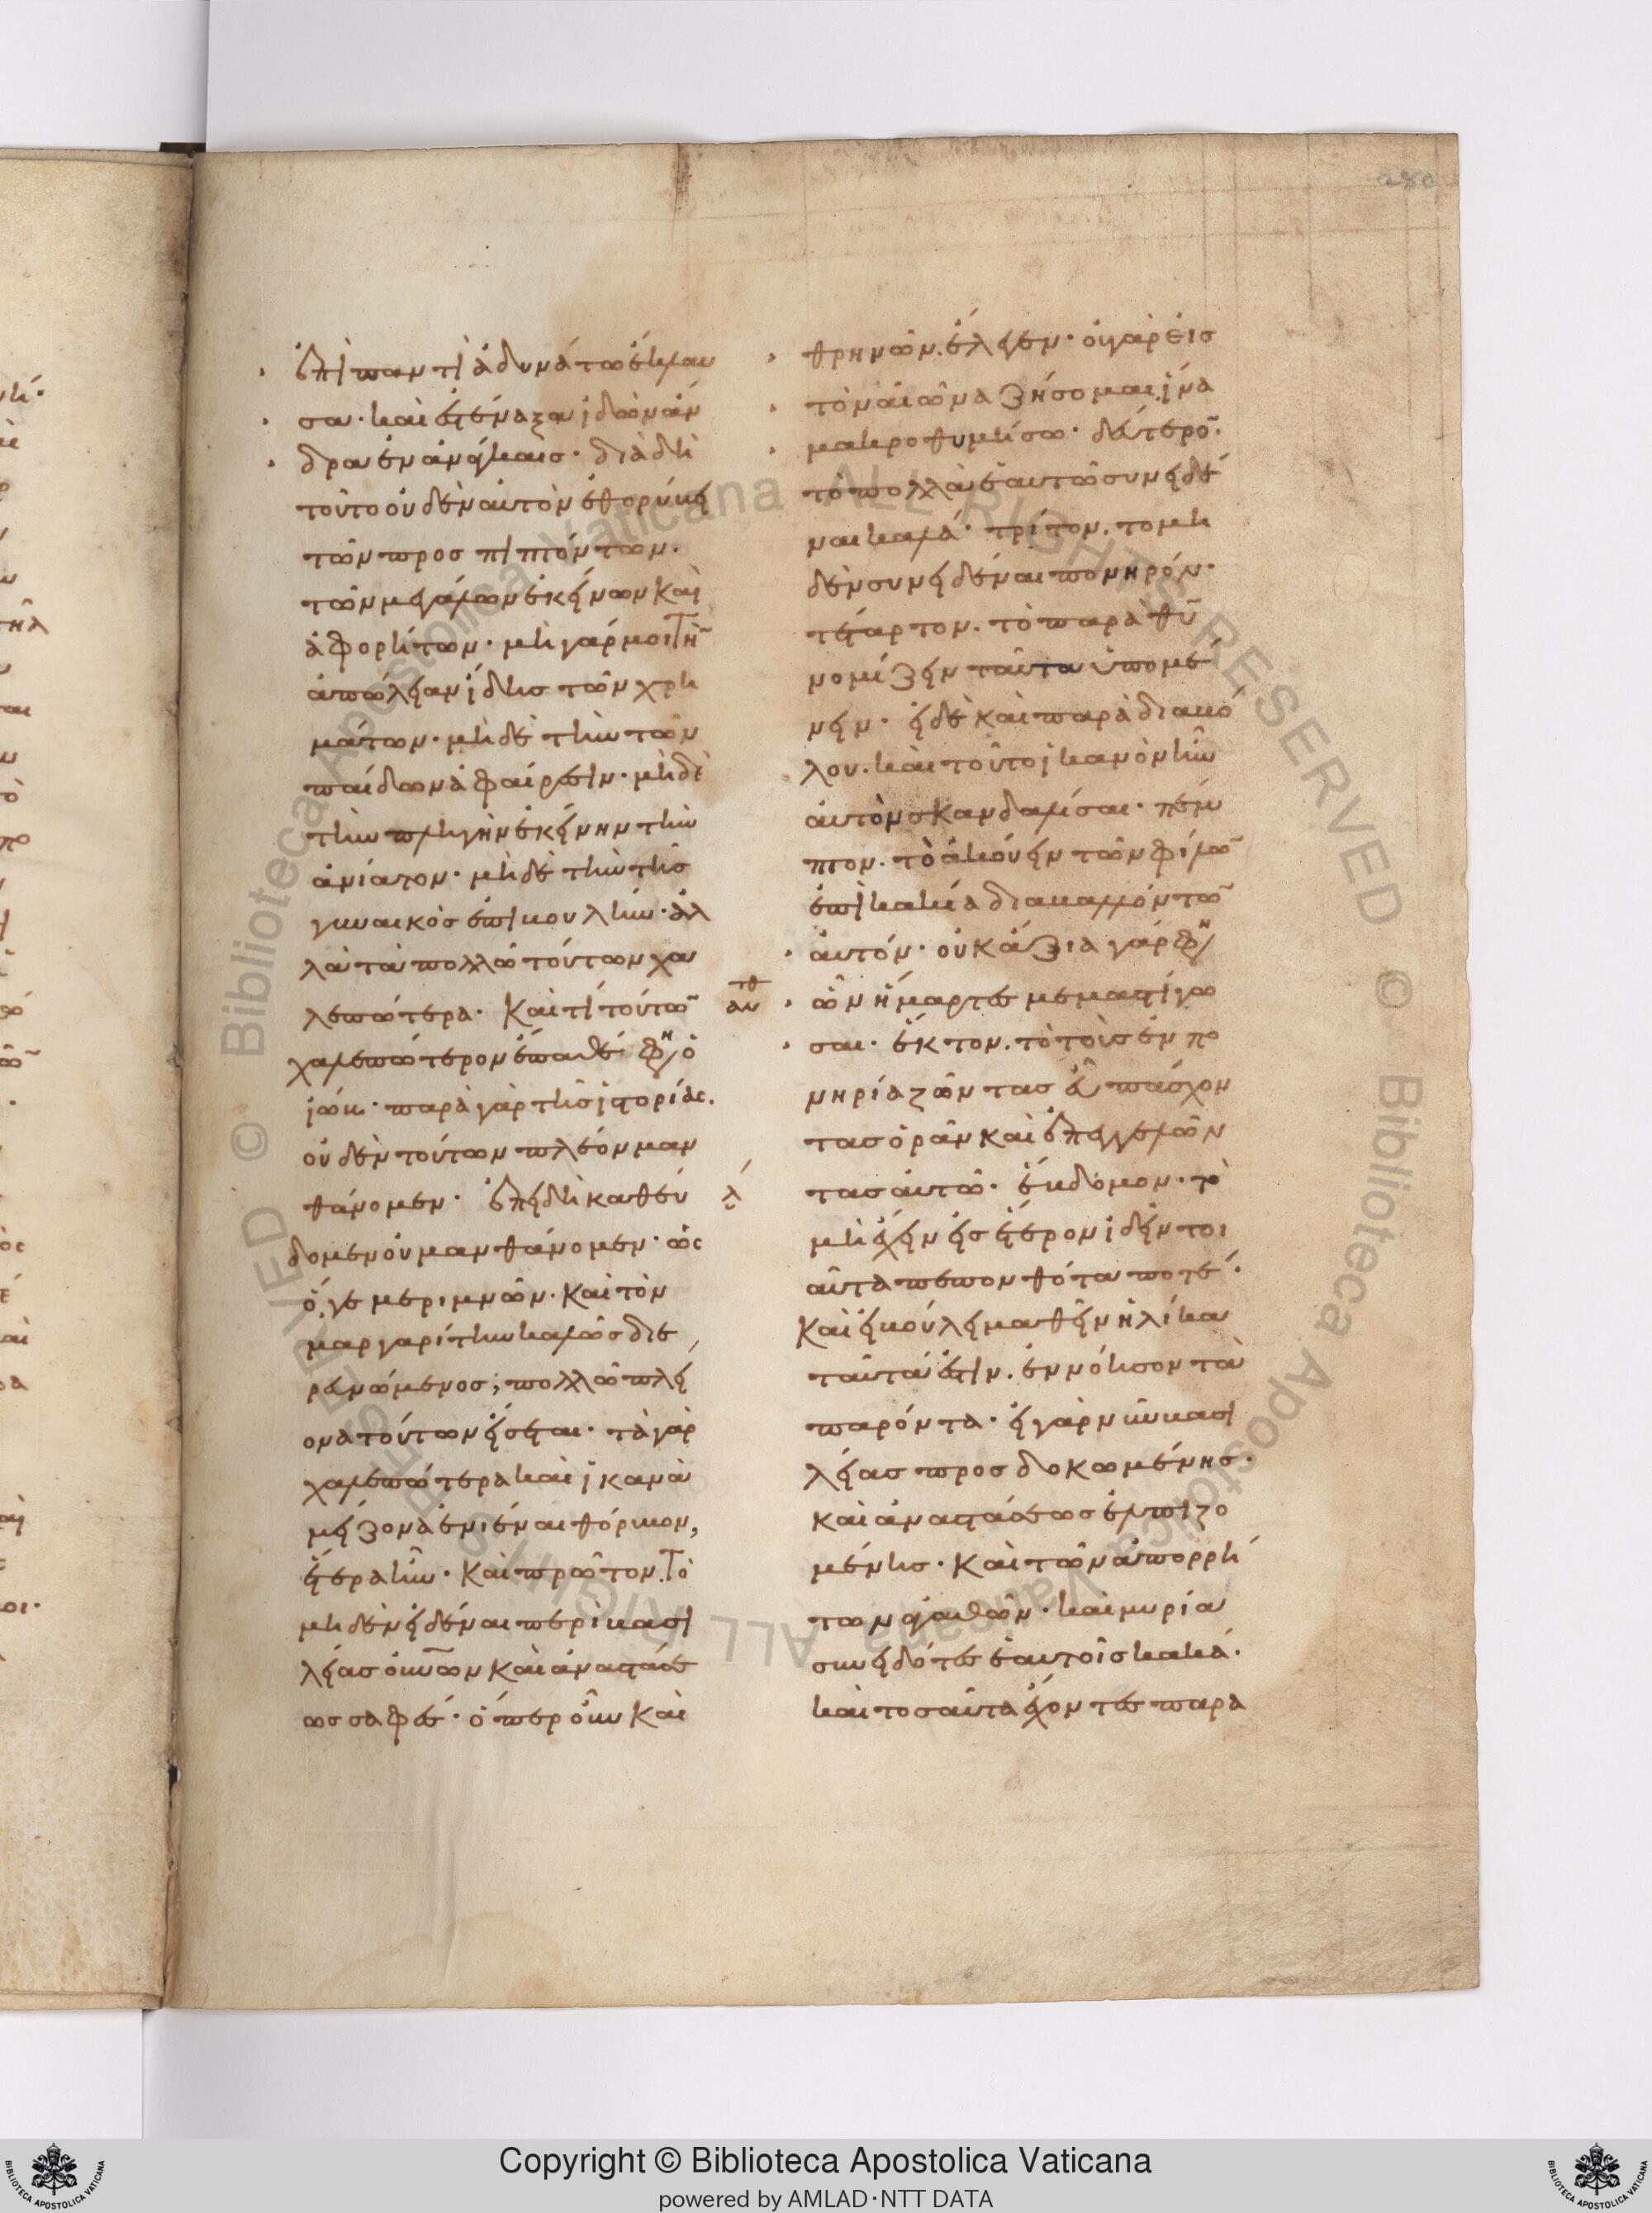 280
ἐπὶ παντὶ ἀδυνάτω ἔκλαυ
σα· καὶ ἐστέναξα ἰδὼν ἄν
δρα ἐν ἀνάγκαις· διὰ δὴ
τοῦτο οὐδὲν αὐτὸν ἐθορύβει
τῶν προσπιπτόντων.
τῶν μεγάλων ἐκείνων καὶ
ἀφορήτων· μὴ γάρ μοι τὴν
ἀπώλειαν ἴδης τῶν χρη
μάτων· μὴ δὲ τὴν τῶν
παίδων ἀφαίρεσιν· μὴ δὲ
τὴν πληγὴν ἐκείνην τὴν
ἀνίατον· μὴ δὲ τὴν τῆς
γυναικὸς ἐπιβουλήν· ἀλ
λὰ τὰ πολλῶ τούτων χα
λεπώτερα· καὶ τί τούτων
χαλεπώτερον ἔπαθέ φησιν ὁ
ἰώβ· παρὰ γὰρ τῆς ἱστορίας.
οὐδὲν τούτων πλέον μαν
θάνομεν· ἐπειδὴ καθεύ
δομεν οὐ μανθάνομεν· ὡς
ὅ γε μεριμνῶν· καὶ τὸν
μαργαρίτην καλῶς διε
ρευνώμενος, πολλῶ πλεί
ονα τούτων εἴσεται· τὰ γὰρ
χαλεπώτερα καὶ ἱκανὰ
μείζονα ἐνιέναι θόρυβον,
ἕτερα ἦν· καὶ πρῶτον. τὸ
μηδὲν εἰδέναι περὶ βασι
λείας οὐρανῶν καὶ ἀναστάσε
ως σαφές· ὅπερ οὖν καὶ
θρηνῶν. ἔλεγεν· οὐ γὰρ εἰς
τὸν αἰῶνα ζήσομαι, ἵνα
μακροθυμήσω· δεύτερον.
τὸ πολλὰ ἑαυτῶ συνειδέ
ναι καλά· τρίτον. τὸ μη
δὲν συνειδέναι πονηρόν·
τέταρτον. τὸ παρὰ θῦ
νομίζειν ταῦτα ὑπομέ
νειν· εἰ δὲ καὶ παρὰ διαβό
λου. καὶ τοῦτο ἱκανὸν ἦν
αὐτὸν σκανδαλίσαι· πέμ
πτον. τὸ ἀκούειν τῶν φίλων
ἐπὶ κακία διαβαλλόντων
αὐτόν· οὐκ ἄξια γάρ φησιν
ὧν ἡμάρτες μεμαστίγω
σαι· ἕκτον. τὸ τοὺς ἐν πο
νηρία ζῶντας εὖ πάσχον
τας ὁρᾶν καὶ ἐπεγγελῶν
τας αὐτῶ· ἕβδομον· τὸ
μὴ ἔχειν εἰς ἕτερον ἰδεῖν τοι
αῦτα πεπονθότα ποτέ·
καὶ εἰ βούλει μαθεῖν ἡλίκα
ταῦτά ἐστιν. ἐννόησον τὰ
παρόντα· εἰ γὰρ νῦν βασι
λείας προσδοκωμένης·
καὶ ἀναστάσεως ἐλπιζο
μένης· καὶ τῶν ἀπορρή
των ἀγαθῶν· καὶ μυρία
συνειδότες ἑαυτοῖς κακά·
καὶ τοσαῦτα ἔχοντες παρα
Copyright © Biblioteca Apostolica Vaticana
powered by AMLAD·NTT DATA